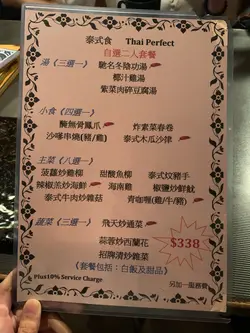 泰式食 Thai Perfect
自選二人套餐
湯（三選一） 馳名冬陰功湯
椰汁雞湯
紫菜肉碎豆腐湯
小食（四選一）
醃無骨鳳爪 炸素菜春卷
沙嗲串燒(豬/雞) 泰式木瓜沙律
主菜（八選一）
菠蘿炒雞柳 甜酸魚柳 泰式炆豬手
辣椒羔炒海鮮 海南雞 椒鹽炒鮮魷
泰式牛肉炒雜菇 青咖喱(雞/牛/豬)
蔬菜（三選一） 飛天炒通菜
蒜蓉炒西蘭花
招牌炒雜菜
$338
（套餐包括：白飯及甜品）
Plus10% Service Charge 另加一服務費